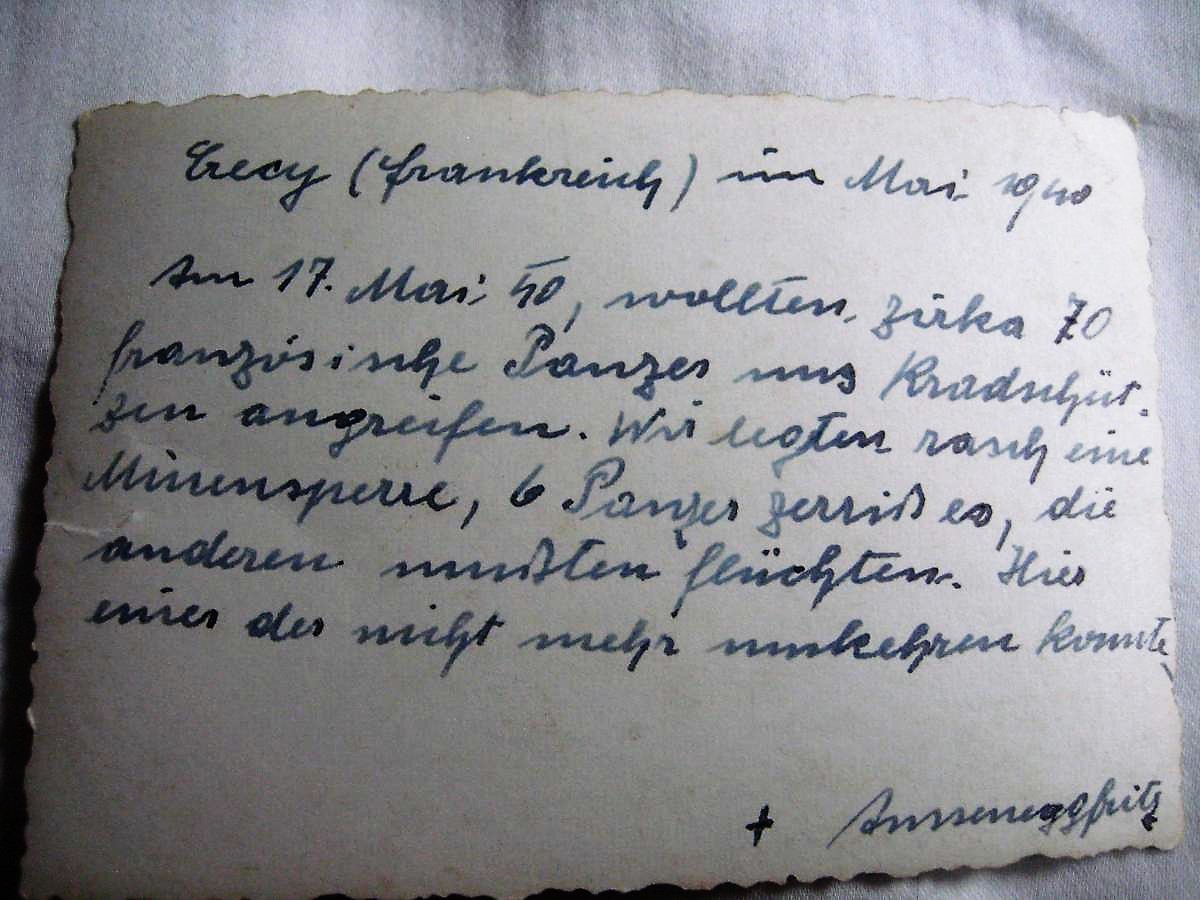 Crecy (Frankreich) im Mai 1940
Am 17. Mai 40, wollten zirka 70
französische Panzer uns Kradschüt-
zen angreifen. Wir legten rasch eine
Minensperre, 6 Panzer zerriß es, die
anderen mußten flüchten. Hier
einer der nicht mehr umkehren konnte
+